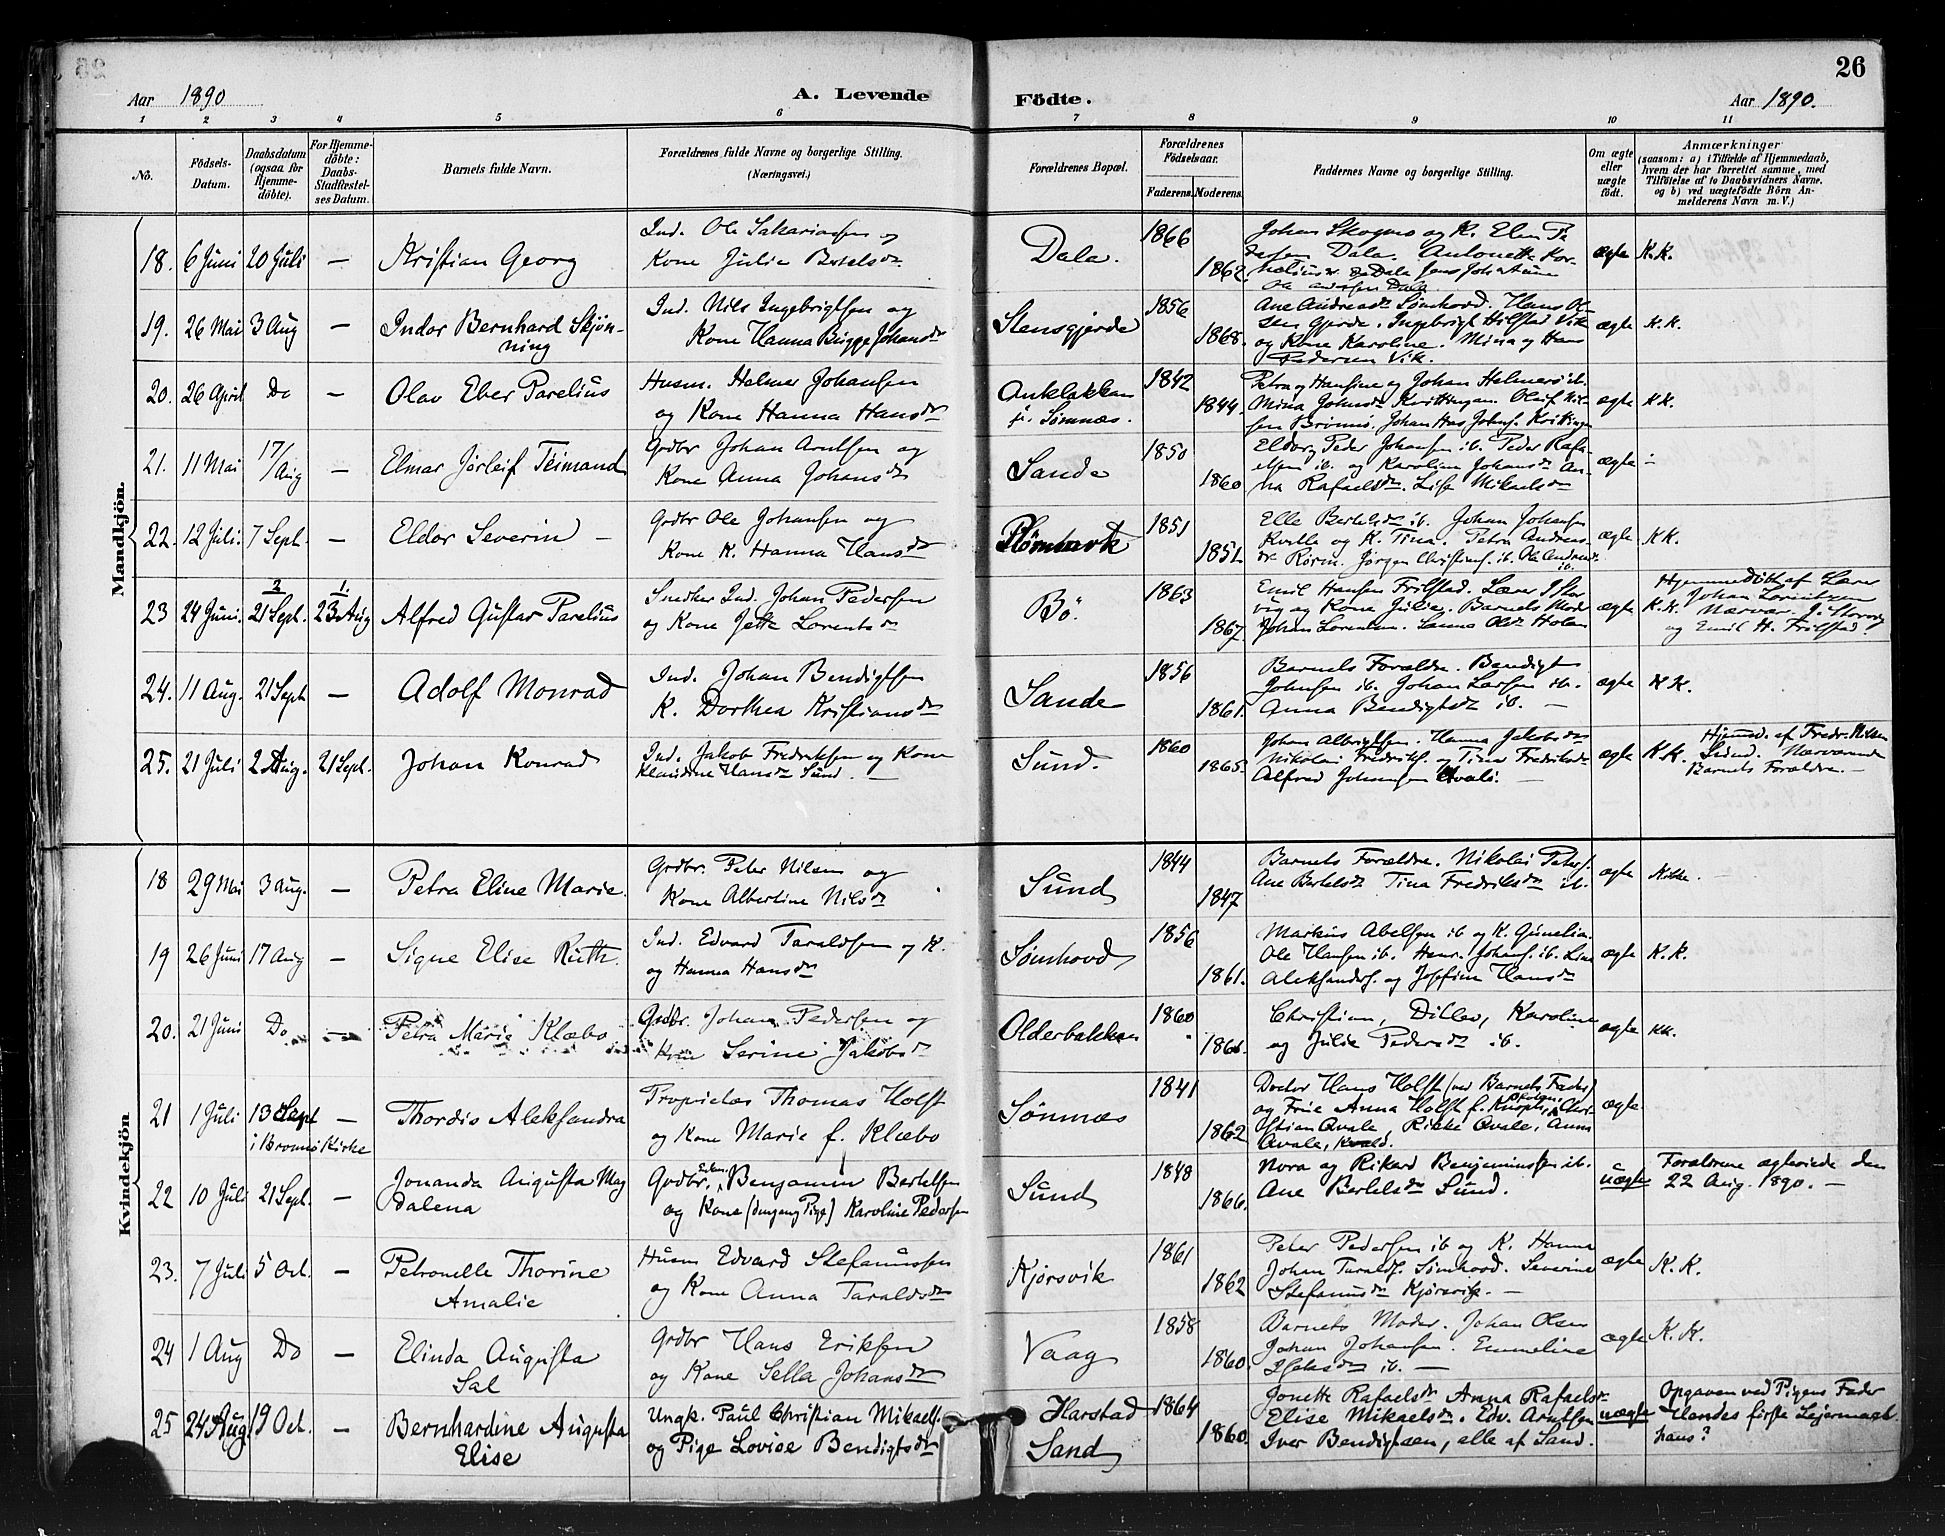 26
Aar 1890 A. Levende Födte. Aar 1890.
1 2 3 4 5 6 7 8 9 10 11
No. Födsels-Datum. Daabsdatum (ogsaa for Hjemme-döbte). For Hjemme-döbte: Daabs-Stadfæstel-ses Datum. Barnets fulde Navn. Forældrenes fulde Navne og borgerlige Stilling. (Næringsvei.) Forældrenes Bopæl. Forældrenes Födselsaar. Faderens. Moderens. Faddernes Navne og borgerlige Stilling. Om ægte eller uægte födt. Anmærkninger
(saasom: a) i Tilfælde af Hjemmedaab, hvem der har forrettet samme, med Tilföielse af to Daabsvidners Navne, og b) ved uægtefödte Börn An-melderens Navn m. V.)
Mandkjön.
18. 6 Juni 20 Juli — Kristian Georg Ind. Ole Sakariassen og
Kone Julie Bertelsdr Dala. 1866 1862. Johan Skogmo og K. Elen Pe
dersen Dala. Antonette Kor-
Dala ægte K.K.
19. 26 Mai 3 Aug — Indor Bernhard Skjøn-
ning Ind. Nils Ingebrigtsen og
Kone Hanna Bugge Johansdr Stensgjerde 1856 1868. Ane Andreasdr Sømhovd. Hans Ol-
sen Gjerde. Ingebrigt Hilstad Vik
og Kone Karoline. Mina og Hans
Pedersen Vik. ægte K.K.
20. 26 April Do — Olav Eber Parelius Husm. Helmer Johansen
og Kone Hanna Hansdr
Sømnæs. 1842 1844. Petra og Hansine og Johan Helmers ib.
Mina Johnsdr ægte K.K.
21. 11 Mai 17/Aug — Elmar Jørleif Teimand Grdbr Johan Arntsen og
Kone Anna Johansdr Sande 1850 1860 Eldor og Peder Johansen ib. Peder Rafa-
elsen ib. og Karoline Johansdr An-
na Rafaelsdr. Lise Mikaelsdr ægte
22. 12 Juli. 7 Sept. — Eldor Severin — Grdbr Ole Johansen og
Kone K. Hanna Hansdr 1851 1851. Elle Bertelsdr ib. Johan Johansen
Kvalle og K. Tina. Petra Andreas-
dr Rørm. Jørgen Christians. ib. Ole Andreas.
ib. ægte KK.
23 24 Juni. 2 21 Sept. 1. 23 Aug Alfred Gustav Parelius Snedker Ind. Johan Pedersen
og Kone Jette Lorentsdr Bö. 1863 1867. Emil Hansen Frilstad. Lærer J Stor
vig og Kone Julie. Barnets Moder
Johan Lorentsen. Sanna Olsdr Holm ægte K.K. Hjemmedöbt af Lærer
Johan Lorentzen
Nærvær. J. Storvig
og Emil H. Frilstad.
24. 11 Aug. 21 Sept — Adolf Monrad Ind. Johan Bendigtsen
K. Dorthea Kristiansdr Sande 1856 1861. Barnets Forældre. Bendigt
Johnsen ib. Johan Larsen ib.
Anna Bendigtsdr ib. — ægte K K.
25. 21 Juli 2 Aug. 21 Sept. Johan Konrad Ind. Jakob Fredriksen og Kone
Klausine Hansdr Sund. — Sund. 1860 1865. Johan Albrigtsen. Hanna Jakobsdr
Nikolai Fredriks. og Tina Fredriksdr
Alfred Johansen ægte K K. Hjemmed. af Fredr. Nilsen
Sund. Nærværende
Barnets Forældre. —
Kvindekjön
18 29 Mai 3 Aug. — Petra Eline Marie. Grdbr. Peter Nilsen og
Kone Albertine Nilsdr Sund 1844 1847 Barnets Forældre. Nikolai Peters.
Ane Bertelsdr Tina Fredriksdr ib. ægte
19 26 Juni 17 Aug — Signe Elise Ruth. Ind. Edvard Taraldsen og K.
og Hanna Hansdr Sømhovd 1856 1861. Markus Abelsen ib og K. Gunelia.
Ole Hansen ib. Henr. Johans. ib. Line
Aleksanders. og Josefine Hansdr ægte K.K.
20. 21 Juni Do — Petra Marie Klæbo Grdbr. Johan Pedersen og
Kone Serine Jakobsdr Olderbakken 1860 Christian, Ditlev, Karoline
og Julie Pedersdr ib. ægte KK.
21 1 Juli 13 Sept — Thordis Aleksandra Proprietær Thomas Holst
i Brønnø Kirke og Kone Marie f. Klæbo Sømnæs 1841 1862 Doctor Hans Holst (ved Barnets Fader)
og Frue Anna Holst f. Chri-
stian Qvale, Rikke Qvale, Anna
Qvale, ægte.
22 10 Juli 21 Sept. — Jonanda Augusta Mag
dalena Grdbr. Benjamin Bertelsen
og Kone (dengang Pige) Karoline Pedersen Sund 1848 1866. Nora og Rikard Benjaminsen ib.
Ane Bertelsdr Sund. uægte Forældrene ægteviede den
22 Aug. 1890. —
23. 7 Juli 5 Oct. — Petronelle Thorine
Amalie Husm Edvard Stefanussen
og Kone Anna Taraldsdr Kjørsvik 1861 1862 Peter Pedersen ib og K. Hanna
Johan Taralds. Sømhovd. Severine
Stefanusdr Kjørsvik. — ægte K.K.
24 1 Aug Do — Elinda Augusta
Sal Grdbr Hans Eriksen
og Kone Sella Johansdr Vaag 1858 1860. Barnets Moder. Johan Olsen
Johan Johansen. Emmeline
ib. — ægte K.K.
25 24 Aug 19 Oct. — Bernhardine Augusta
Elise Ungk. Paul Christian Mikaels.
og Pige Lovise Bendigtsdr Harstad
Sand 1864 1860. Jonette Rafaelsdr Anna Rafaelsdr
Elise Mikaelsdr. Edv. Arntsen
Iver Bendigtsen, alle af Sand. uægte Opgaven ved Pigens Fader
Hendes første Leiermaal.
hans?